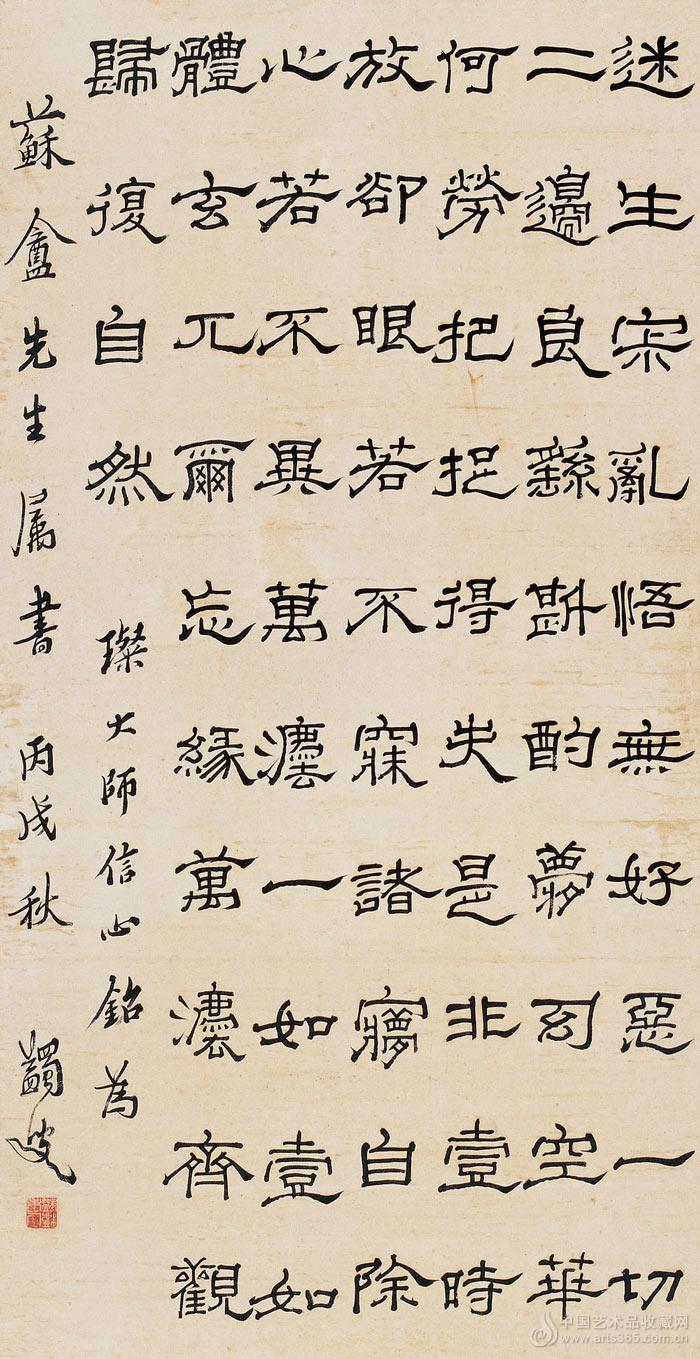 迷生宋亂悟無好惡一切
二邊良繇斟酌夢幻空華
何勞把捉得失是非壹時
放卻眼若不寐諸㝱自除
心若不異萬灋一如壹如
體玄兀爾忘緣萬灋齊觀
歸復自然
璨大師信心銘為
蘇盦先生属書 丙戌秋 蠲叟
中国艺术品收藏网
www.arts365.com.cn